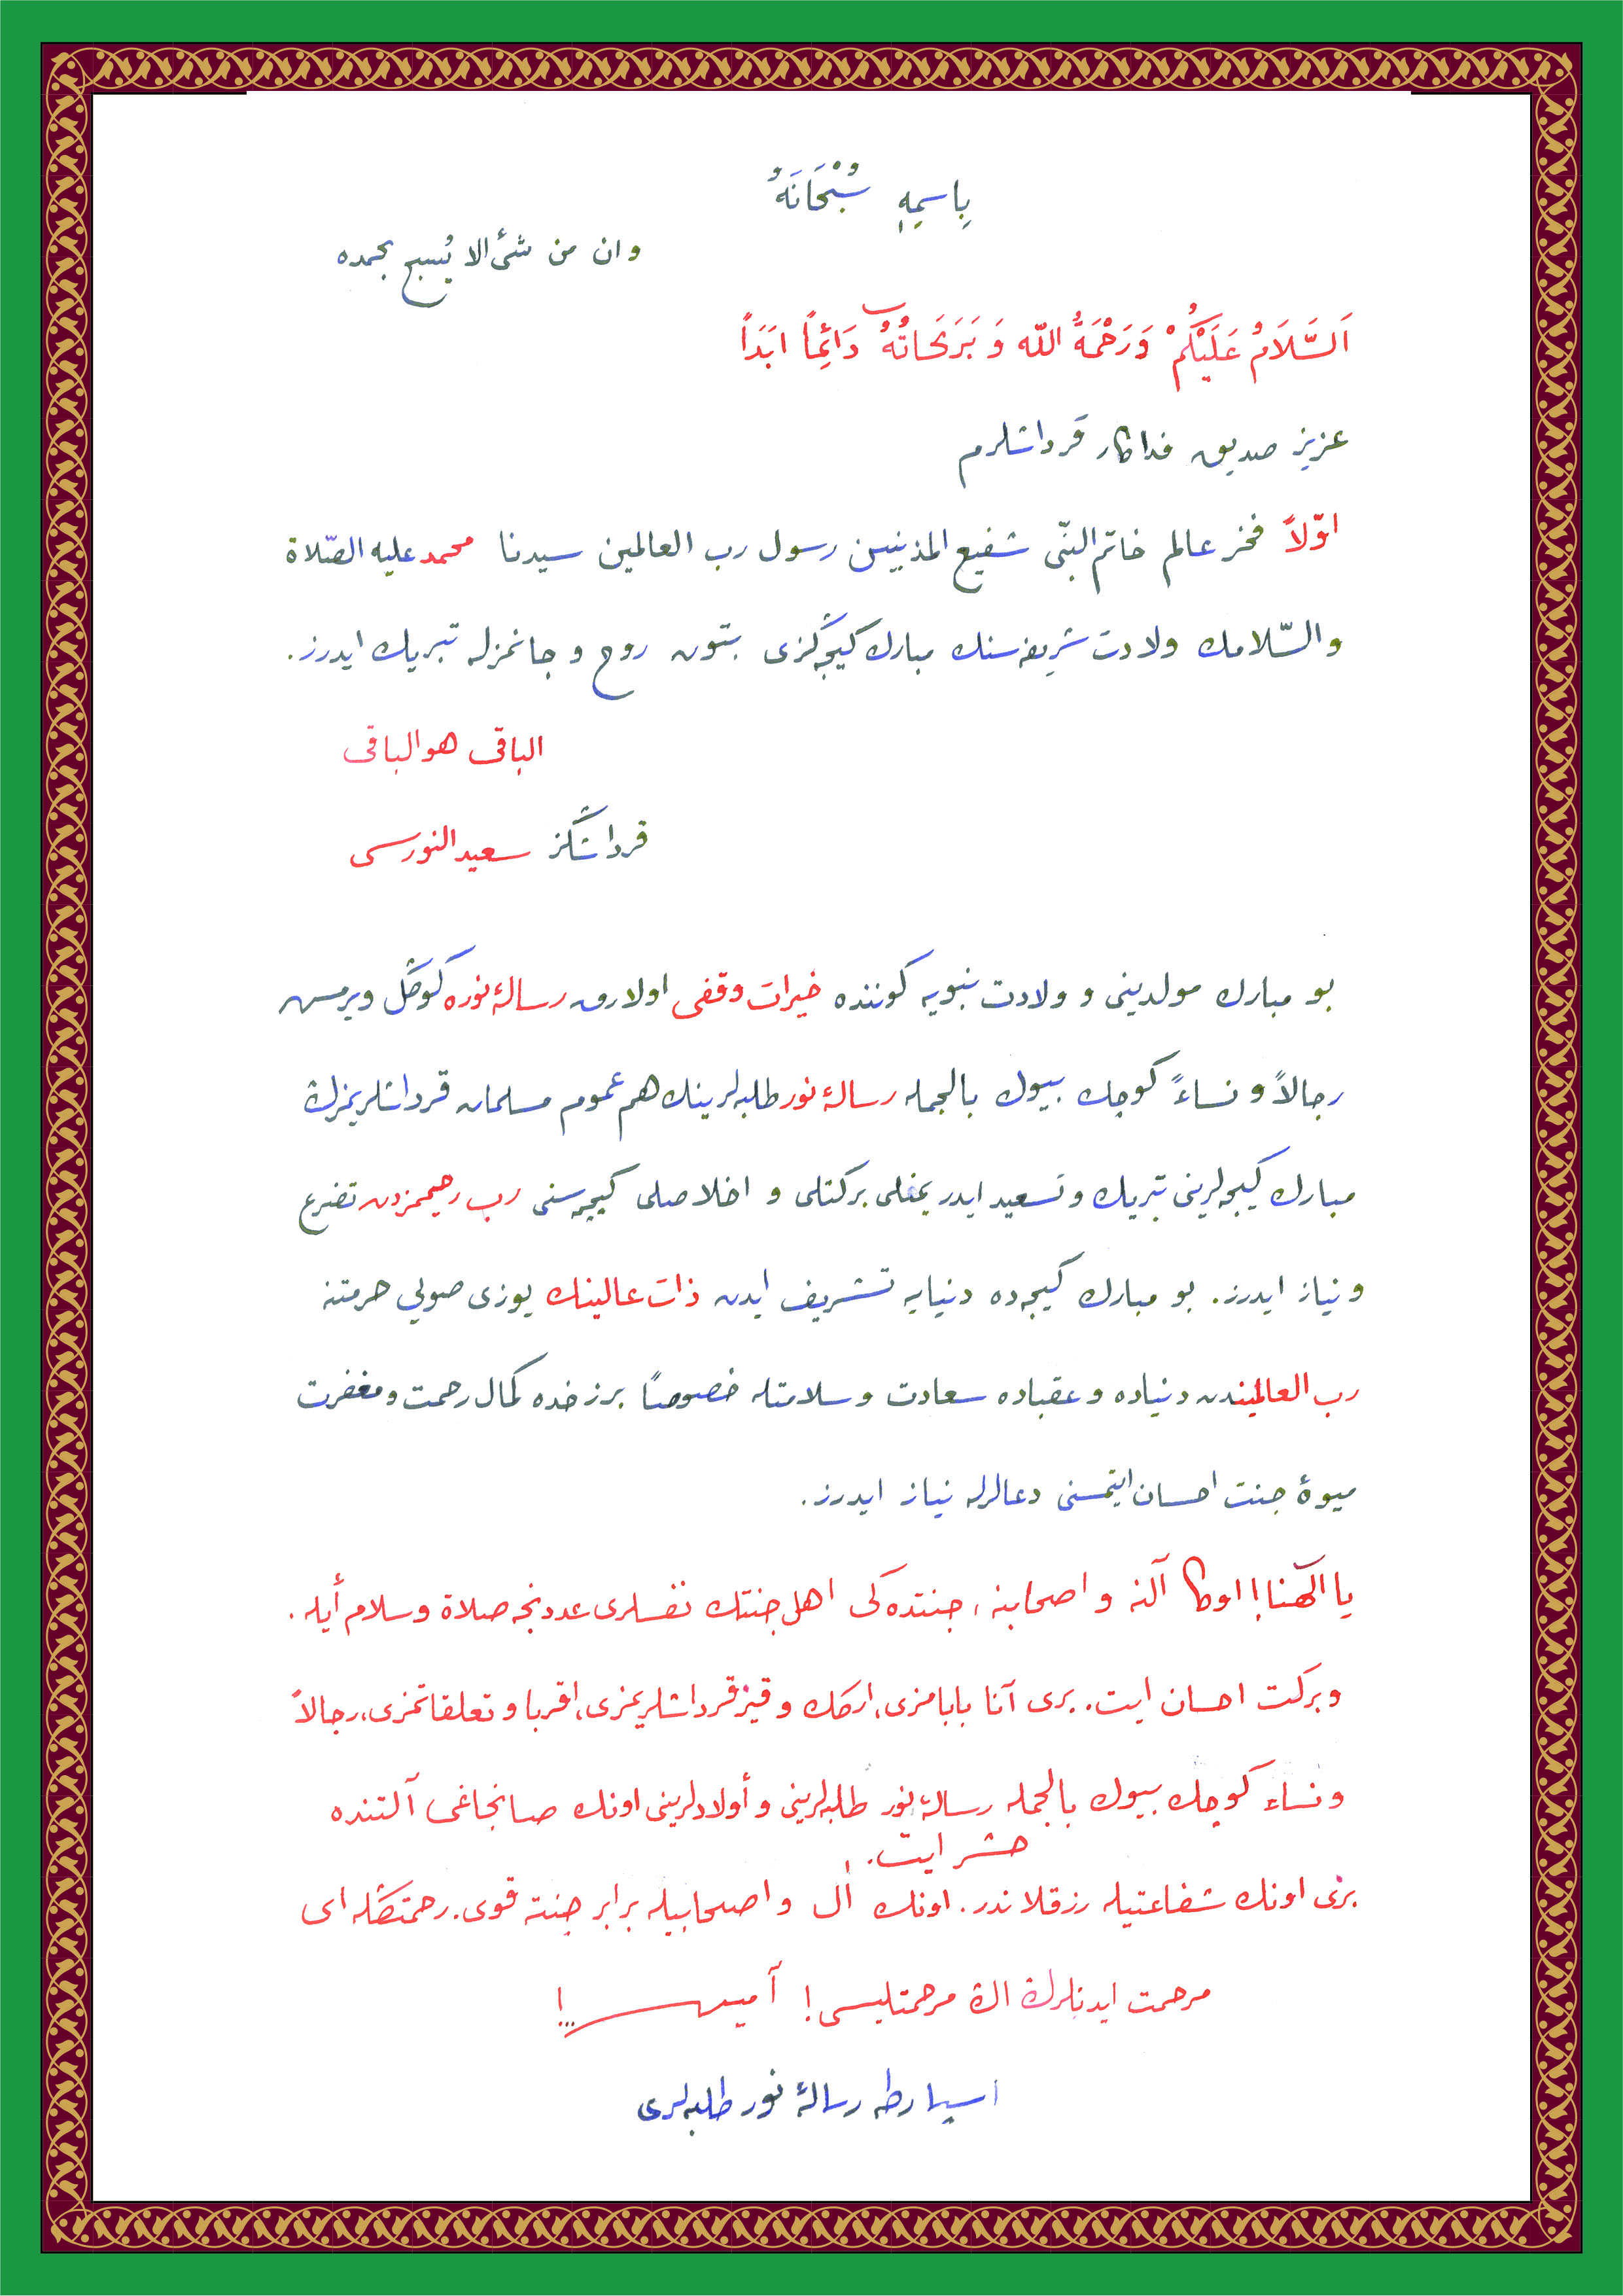 بِاسمِهِ سُبْحَانَهُ
و ان من شئ الا يُسبح بحمده
اَلسَّلَامُ عَلَيْكُمْ وَرَحْمَةُ اللّه وَ بَرَكَاتُهُ دَائِماً ابَدَاً
عزيز صديق فداكار قرداشلرم
اوّلاً فخر عالم خاتم النبّى شفيع المذنبين رسول رب العالمين سيدنا محمد عليه الصّلاة
والسّلامك ولادت شريفه سنك مبارك كيجه ڭزى بتون روح و جانمزله تبريك ايدرز.
الباقى هو الباقى
قرداشڭز سعيد النورسى
بو مبارك مولدينى و ولادت نبويه كوننده خيرات وقفى اولارق رسالۀ نوره كوڭل ويرمش
رجالاً و نساءً كوچك بيوك بالجمله رسالۀ نور طلبه لرينك هم عموم مسلمان قرداشلريمزڭ
مبارك كيجه لرينى تبريك و تسعيد ايدر يمنلى بركتلى و اخلاصلى كيچمسنى رب رحيممزدن تضرع
و نياز ايدرز. بو مبارك كيجه ده دنيايه تشريف ايدن ذات عالينك يوزى صويى حرمتنه
رب العالميندن دنياده و عقباده سعادت و سلامتله خصوصاً برزخده كمال رحمت و مغفرت
ميوۀ جنت احسان ايتمسنى دعالرله نياز ايدرز.
يا الٓهنا! اوڭا آلنه و اصحابنه، جنتده كى اهل جنتك نفسلرى عددنجه صلاة و سلام أيله.
و بركت احسان ايت. بزى آنا بابامزى، اركك و قيز قرداشلريمزى، اقربا و تعلقاتمزى، رجالاً
و نساء كوچك بيوك بالجمله رسالۀ نور طلبه لرينى و أولادلرينى اونك صانجاغى آلتنده
حشر ايت.
بزى اونك شفاعتيله رزقلاندر. اونك اٰل و اصحابيله برابر جنته قوى. رحمتڭله اى
مرحمت ايدنلرڭ اڭ مرحمتليسى! آمين!...
اسپارطه رسالۀ نور طلبه لرى